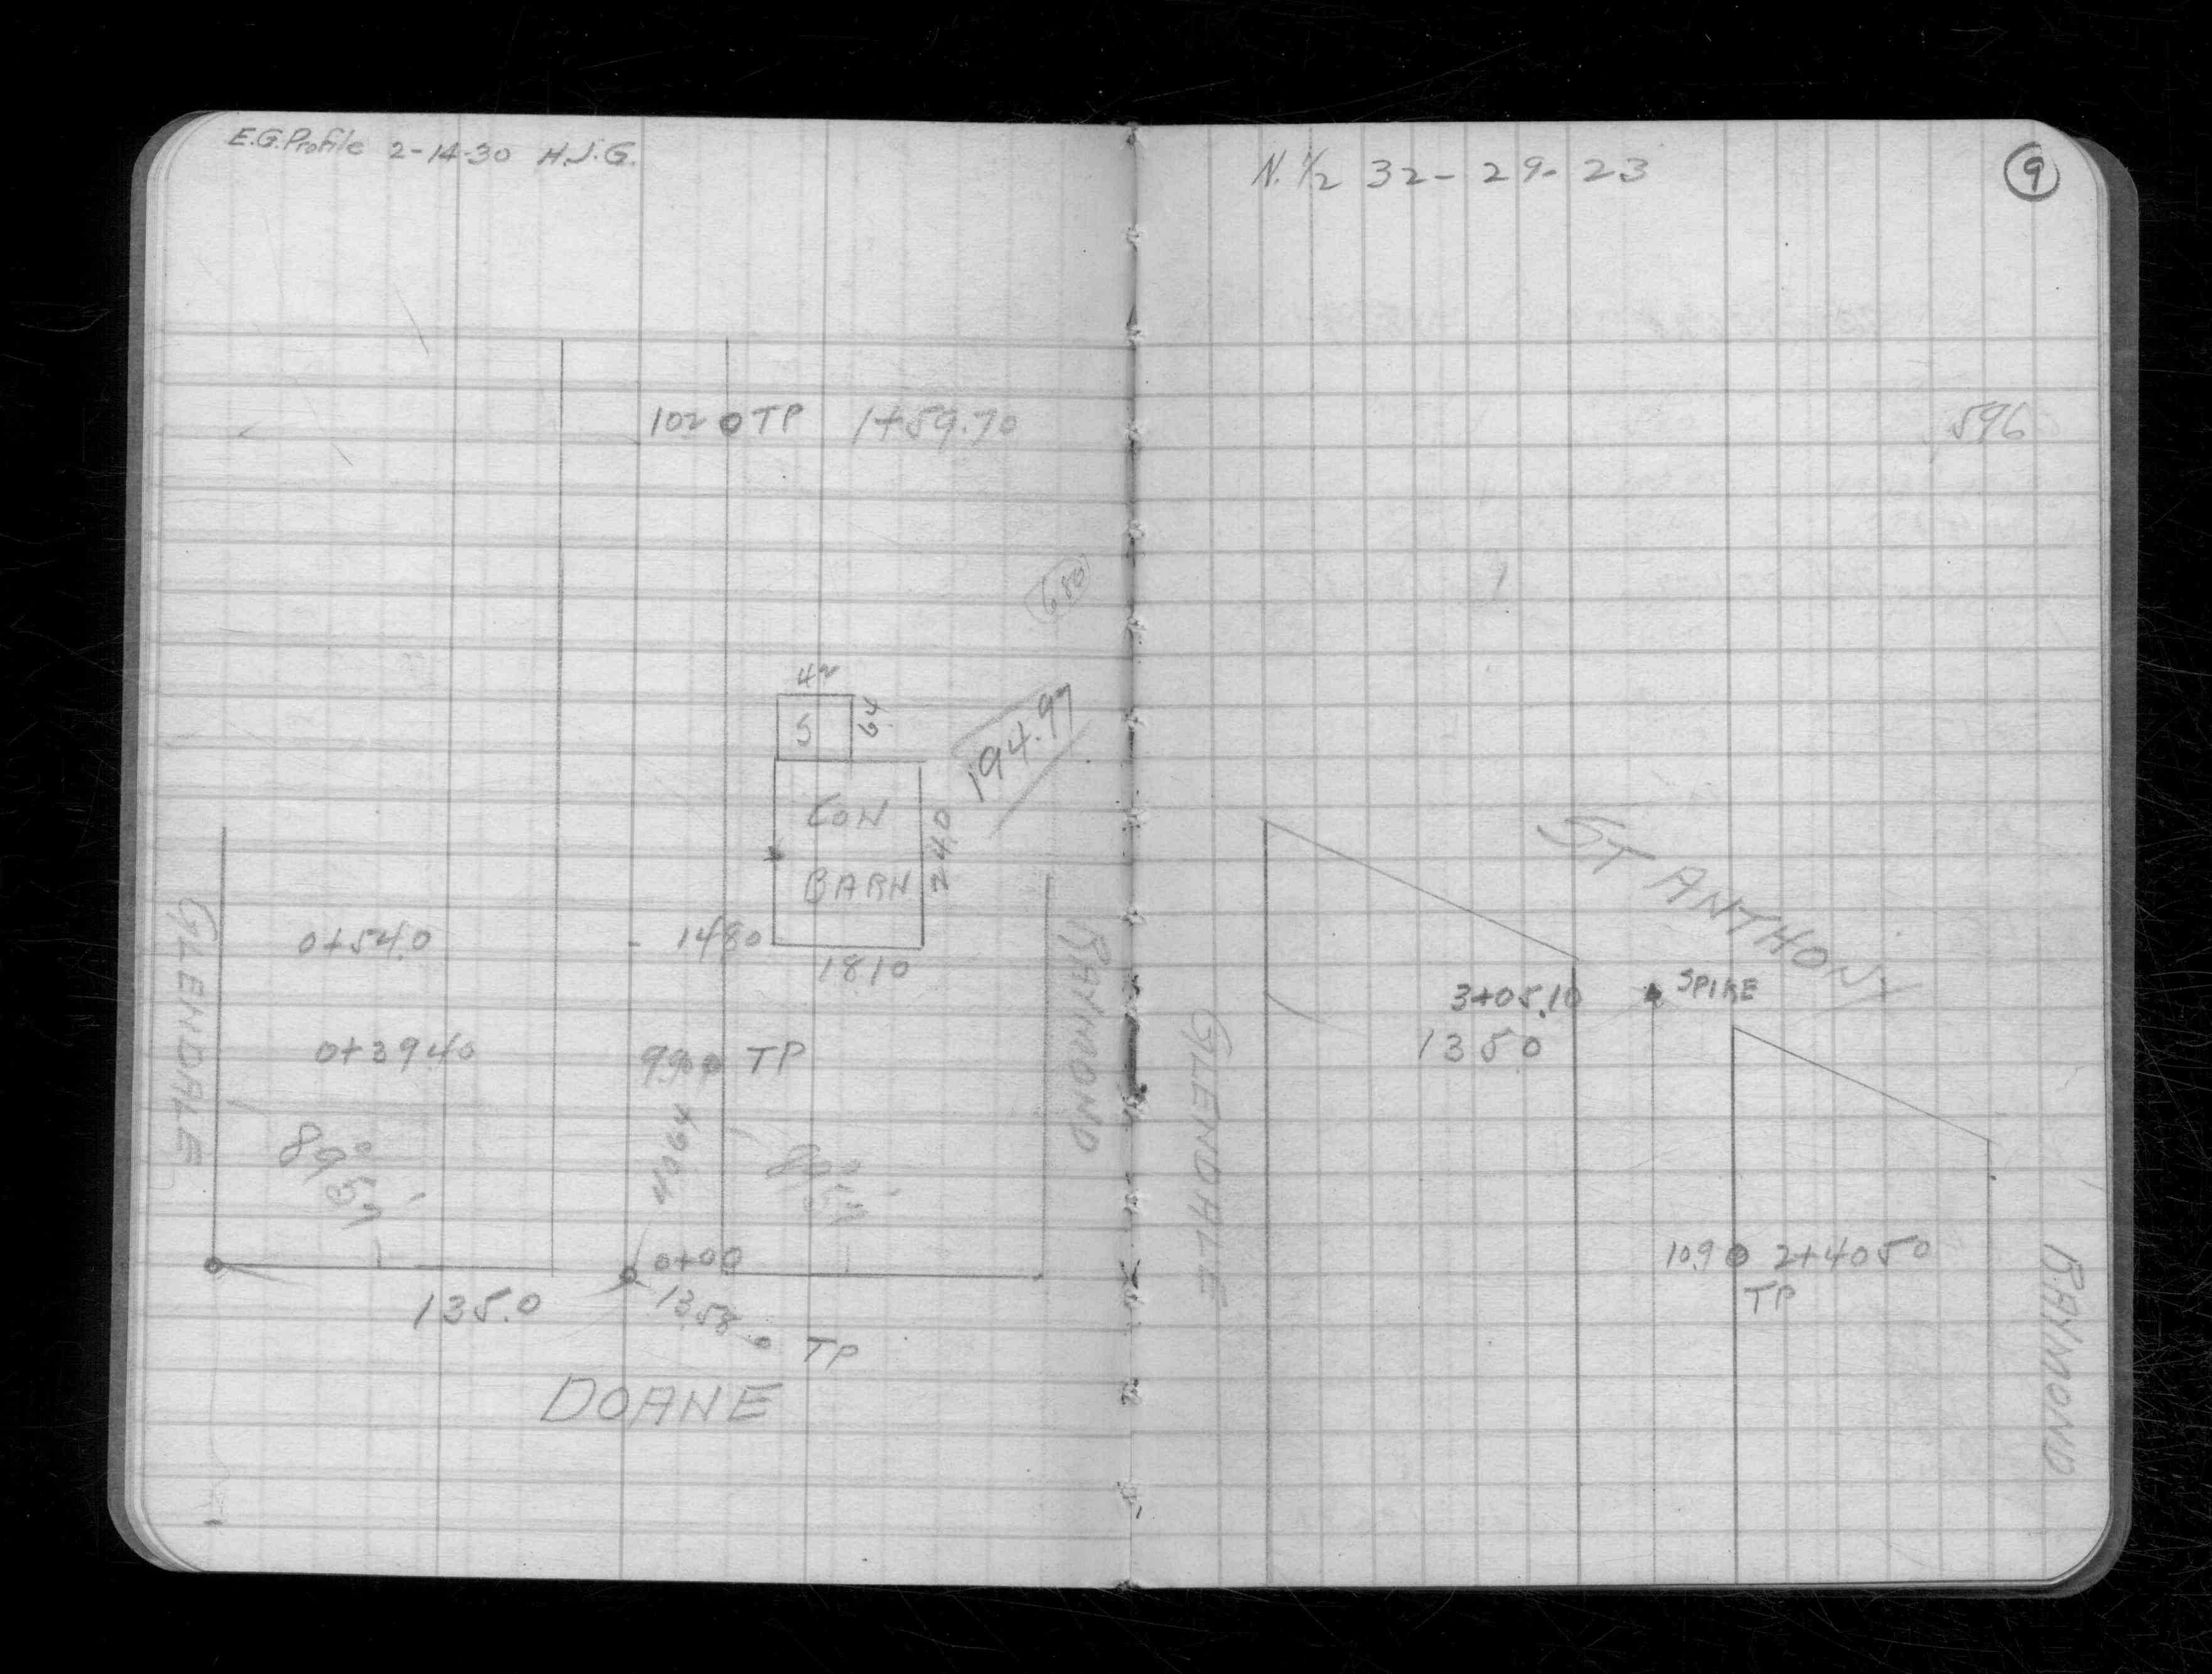 E.G. Profile 2-14-30 H.J.G.
102 TP 1+59.70
680
42
S
64
194.97
CON
BARN
24.0
GLENDALE
0+54.0
1480
1810
RAYMOND
0+39.40
990 TP
89°
57'
89°
57'
0+00
135.0
1358
TP
DOANE
N. 1/2 32-29-23
9
596
ST ANTHONY
3+05.10
SPIKE
1350
GLENDALE
10.9 2+4050
TP
RAYMOND